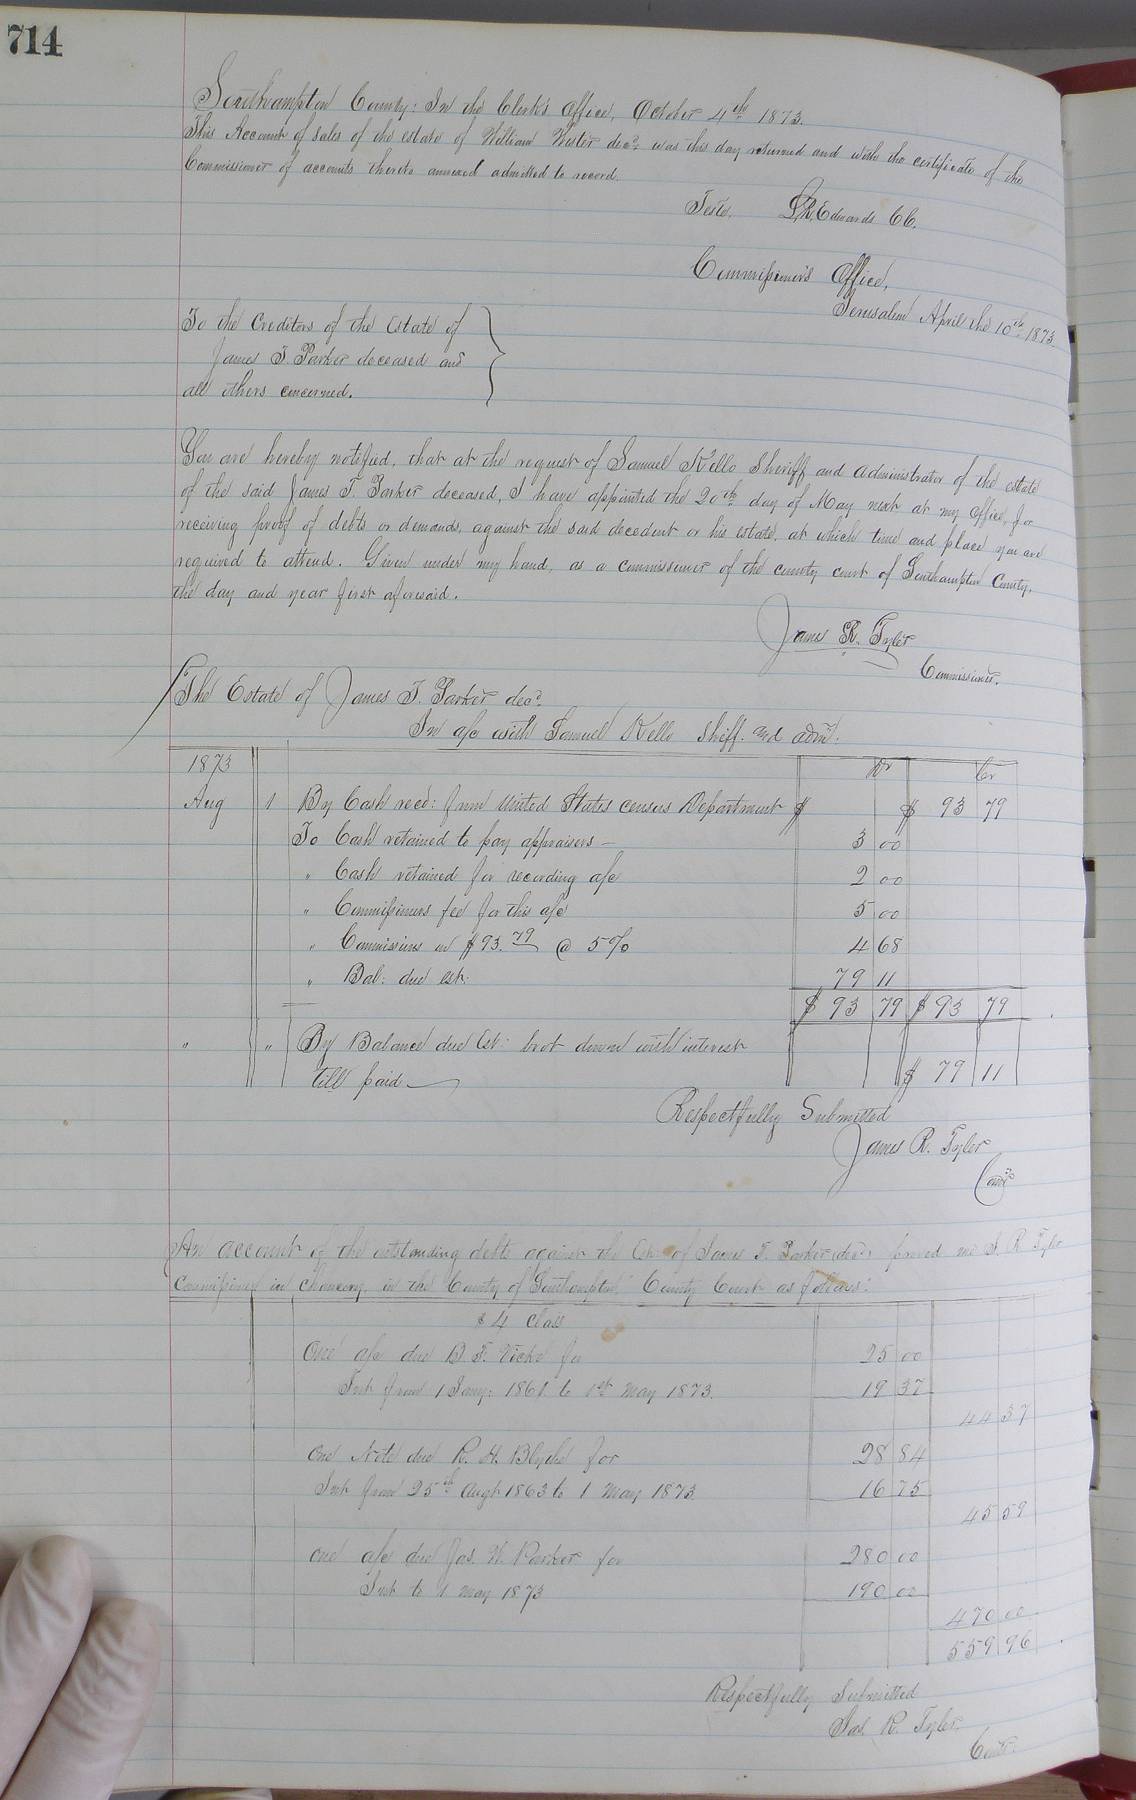 714
Southampton County: In the Clerk's Office, October 4th 1873.
This Account of sales of the estate of William Wester decd was this day returned and with the certificate of the
Commissioner of accounts thereto annexed admitted to record.
Teste, L. R. Edwards C C.
Commissioner's Office,
Jerusalem April the 10th 1873.
To the Creditors of the Estate of
James T. Parker deceased and
all others concerned.
You are hereby notified, that at the request of Samuel Kello Sheriff and administrator of the estate
of the said James T. Parker deceased, I have appointed the 20th day of May next at my Office, for
receiving proof of debts or demands, against the said decedent or his estate, at which time and place you are
required to attend. Given under my hand, as a commissioner of the county court of Southampton County,
the day and year first aforesaid.
James R. Tyler
Commissioner.
The Estate of James T. Parker decd.
In a/c with Samuel Kello Shiff. and adm.
1873 Dr Cr
Aug 1 By Cash recd: from United States census Department $ $ 93 79
To Cash retained to pay appraisers — 3 00
" Cash retained for recording a/c 2 00
" Commissioners fee for this a/c 5 00
" Commissions on $93.79 @ 5% 4 68
" Bal: due est: 79 11
$ 93 79 $ 93 79
" " By Balance due Est: brot down with interest
till paid $ 79 11
Respectfully Submitted
James R. Tyler
Comr
An account of the outstanding debts against the Est of James T. Parker decd proved me J. R Tyler
Commissioner in Chancery, in the County of Southampton County Court as follows:
4 class
One a/c due B. F. for 25 00
Int from 1 Jany: 1861 to 1st May 1873. 19 37
44 37
One Note due R. H. Blythe for 28 84
Int from 25th Augt 1863 to 1 May 1873. 16 75
45 59
One a/c due Jas. W. Parker for 280 00
Int to 1 May 1873 190 00
470 00
559 96
Respectfully Submitted
Jas. R. Tyler.
Comr.